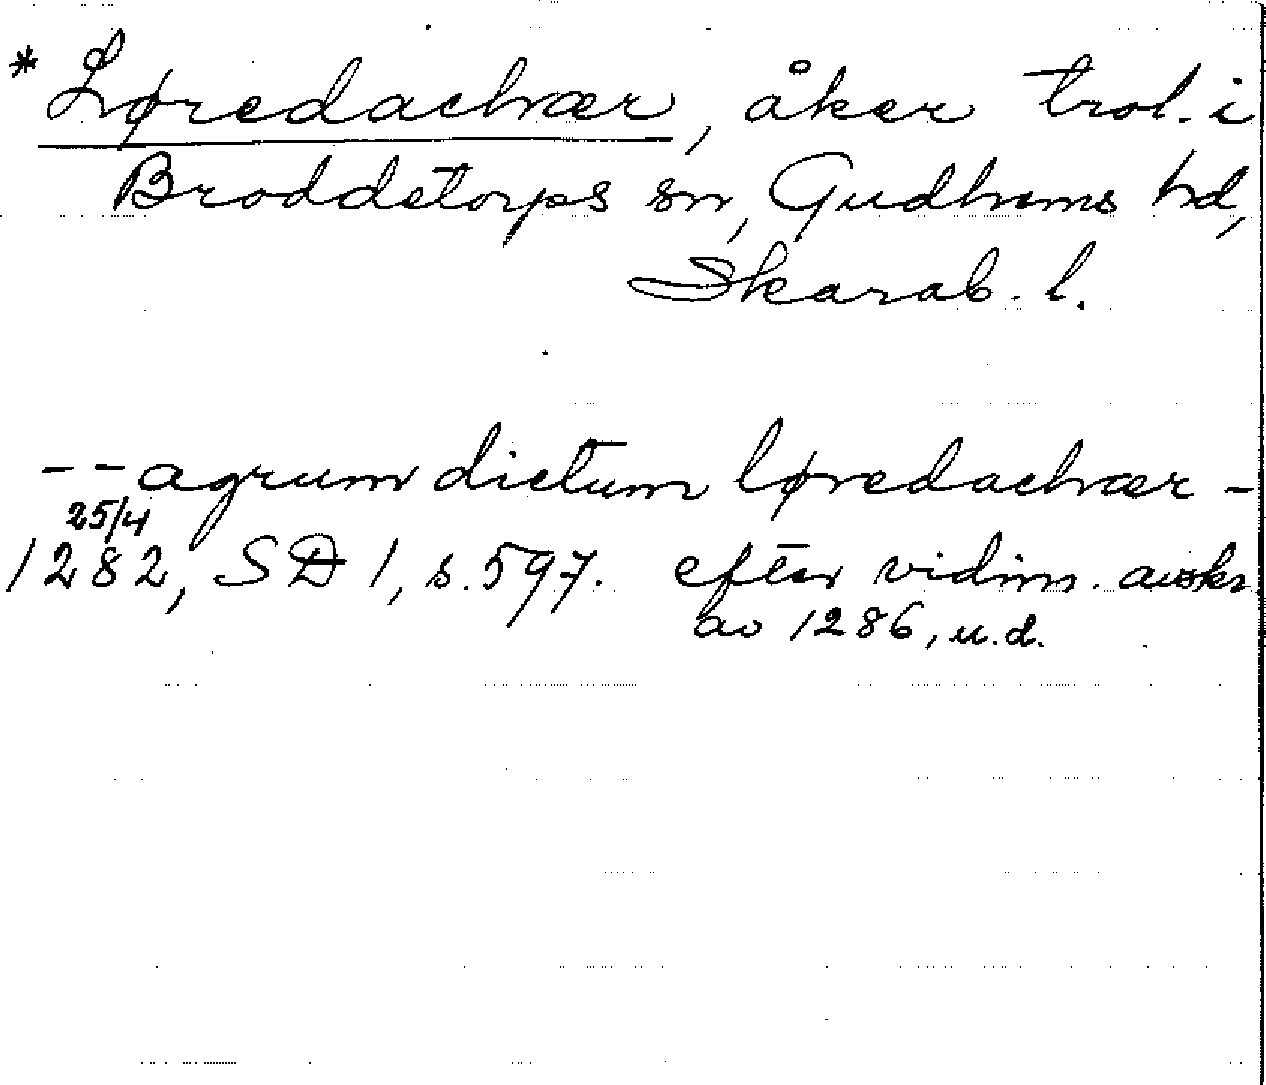 *Løredachrær, åker trol. i
Broddetorps sn, Gudhems hd,
Skarab. l.
-- agrum dictum løredachrær -
25/4
1282, SD 1, s. 597. efter vidim. avskr.
av 1286, u.d.